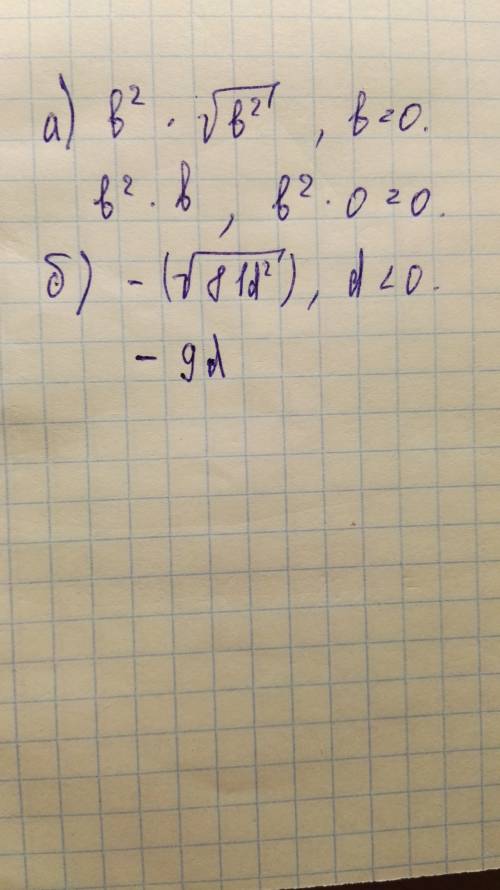 а) b² · √b², b = 0.
b² · b, b² · 0 = 0.
б) - (√81d²), d < 0.
- 9d